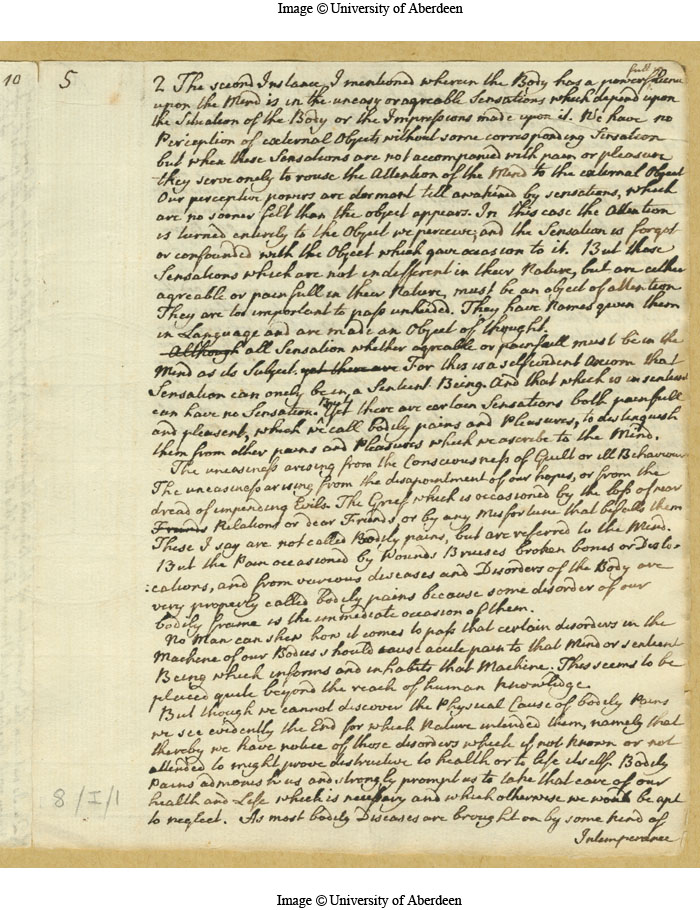 Image © University of Aberdeen
10
5
2 The second Instance I mentioned wherein the Body has a powerfull Influence
upon the Mind is in the uneasy or agreable Sensations which depend upon
the Situation of the Body or the Impressions made upon it. We have no
Perception of external Objects without some corresponding Sensation
but when these Sensations are not accompanied with pain or pleasure
they serve onely to rouse the Attention of the Mind to the external Object
Our perceptive powers are dormant till awakned by sensations, which
are no sooner felt than the object appears. In this case the Attention
is turned entirely to the Object we perceive, and the Sensation is forgot
or confounded with the Object which gave occasion to it. But those
Sensations which are not indifferent in their Nature, but are either
agreable or painfull in their Nature, must be an object of attention
They are too important to pass unheeded. They have Names given them
in Language and are made an Object of thought.
Although all Sensation whether agreable or painfull must be in the
Mind as its Subject. yet there are For this is a selfevident Axiom that
Sensation can onely be in a Sentient Being. And that which is insentient
can have no Sensation. But Yet there are certain Sensations both painfull
and pleasent, which we call bodily pains and Pleasures, to distinguish
them from other pains and Pleasures which we ascribe to the Mind.
The uneasiness arising from the Consciousness of Guilt or ill Behaviour
The uneasiness arising from the disapointment of our hopes, or from the
dread of impending Evils. The Grief which is occasioned by the loss of near
Friends Relations or dear Friends, or by any Misfortune that befalls them
These I say are not called Bodily pains, but are referred to the Mind.
But the Pain occasioned by Wounds Bruises broken bones or Dislo-
:cations, and from various diseases and Disorders of the Body are
very properly called bodily pains because some disorder of our
bodily frame is the immediate occasion of them.
No Man can shew how it comes to pass that certain disorders in the
Machine of our Bodies should cause acute pain to that Mind or sentient
Being which informs and inhabits that Machine. This seems to be
placed quite beyond the reach of human Knowlidge
But though we cannot discover the Physical Cause of bodily Pains
we see evidently the End for which Nature intended them, namely that
thereby we have notice of those disorders which if not known or not
attended to might prove destructive to health or to life itself. Bodily
Pains admonish us and strongly prompt us to take that care of our
health and Life which is necessary and which otherwise we would be apt
to neglect. As most bodily Diseases are brought on by some kind of
Intemperance
8/I/1
Image © University of Aberdeen